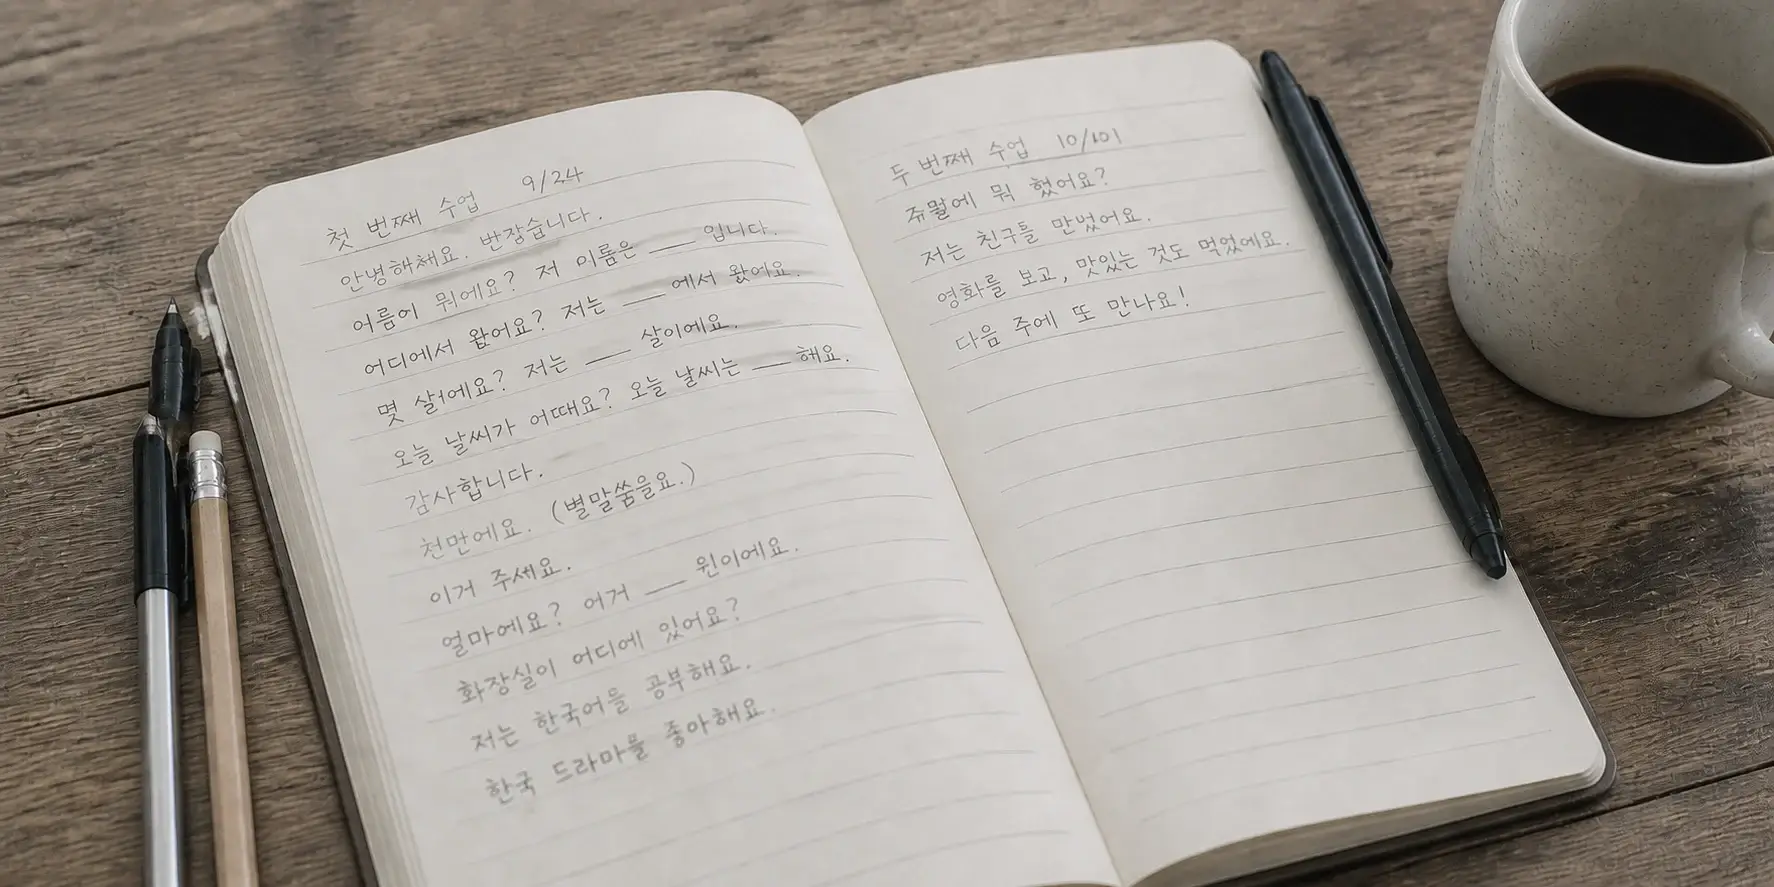 첫 번째 수업 9/24
안병해체요. 반장습니다.
어름이 뭐에요? 저 이름은 ___ 입니다.
어디에서 왔어요? 저는 ___ 에서 왔어요.
몇 살에요? 저는 ___ 살이에요.
오늘 날씨가 어때요? 오늘 날씨는 ___ 해요.
감사합니다.
천만에요. (별말씀을요.)
이거 주세요.
얼마에요? 어거 ___ 원이에요.
화장실이 어디에 있어요?
저는 한국어를 공부해요.
한국 드라마를 좋아해요.
두 번째 수업
뭐 했어요?
저는 친구들 만났어요.
영화를 보고, 맛있는 것도 먹었에요.
다음 주에 또 만나요!